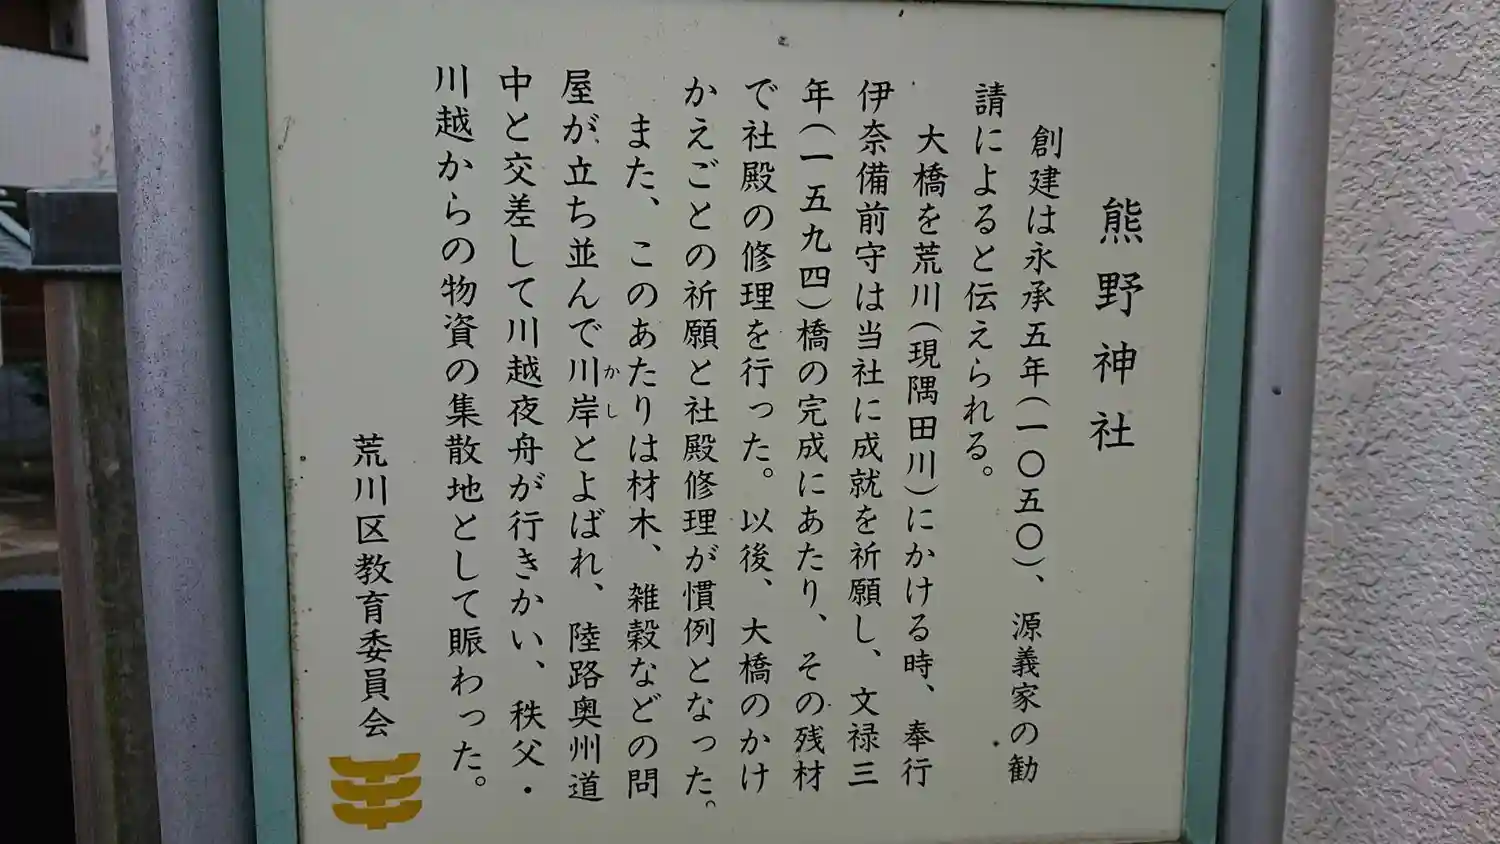 熊野神社
創建は永承五年(一〇五〇)、源義家の勧
請によると伝えられる。
大橋を荒川(現隅田川)にかける時、奉行
伊奈備前守は当社に成就を祈願し、文禄三
年(一五九四)橋の完成にあたり、その残材
で社殿の修理を行った。以後、大橋のかけ
かえごとの祈願と社殿修理が慣例となった。
また、このあたりは材木、雑穀などの問
屋が立ち並んで川岸とよばれ、陸路奥州道
かし
中と交差して川越夜舟が行きかい、秩父・
川越からの物資の集散地として賑わった。
荒川区教育委員会